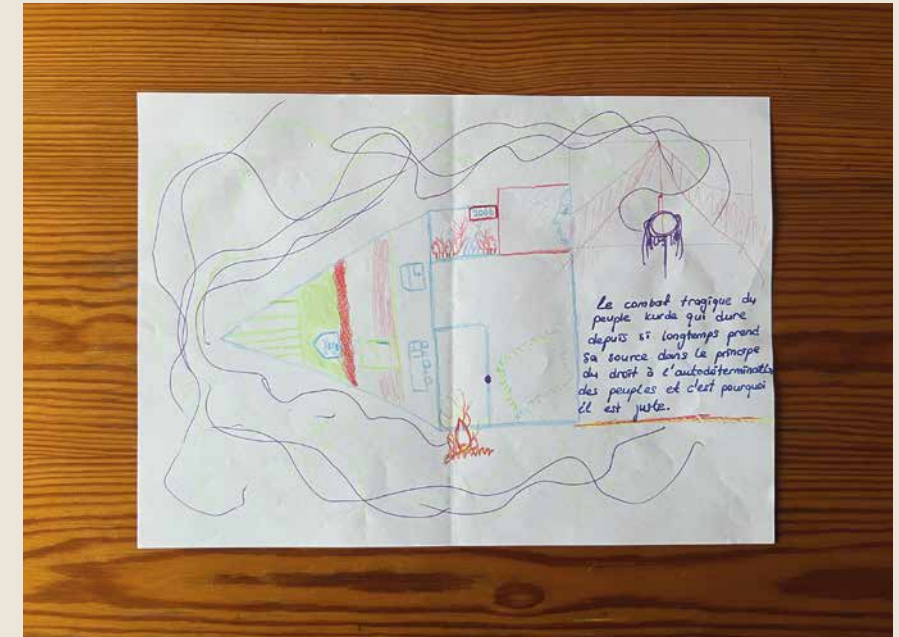 2000
Le combat tragique du
peuple kurde qui dure
depuis si longtemps prend
sa source dans le principe
du droit à l'autodétermination
des peuples et c'est pourquoi
il est juste.